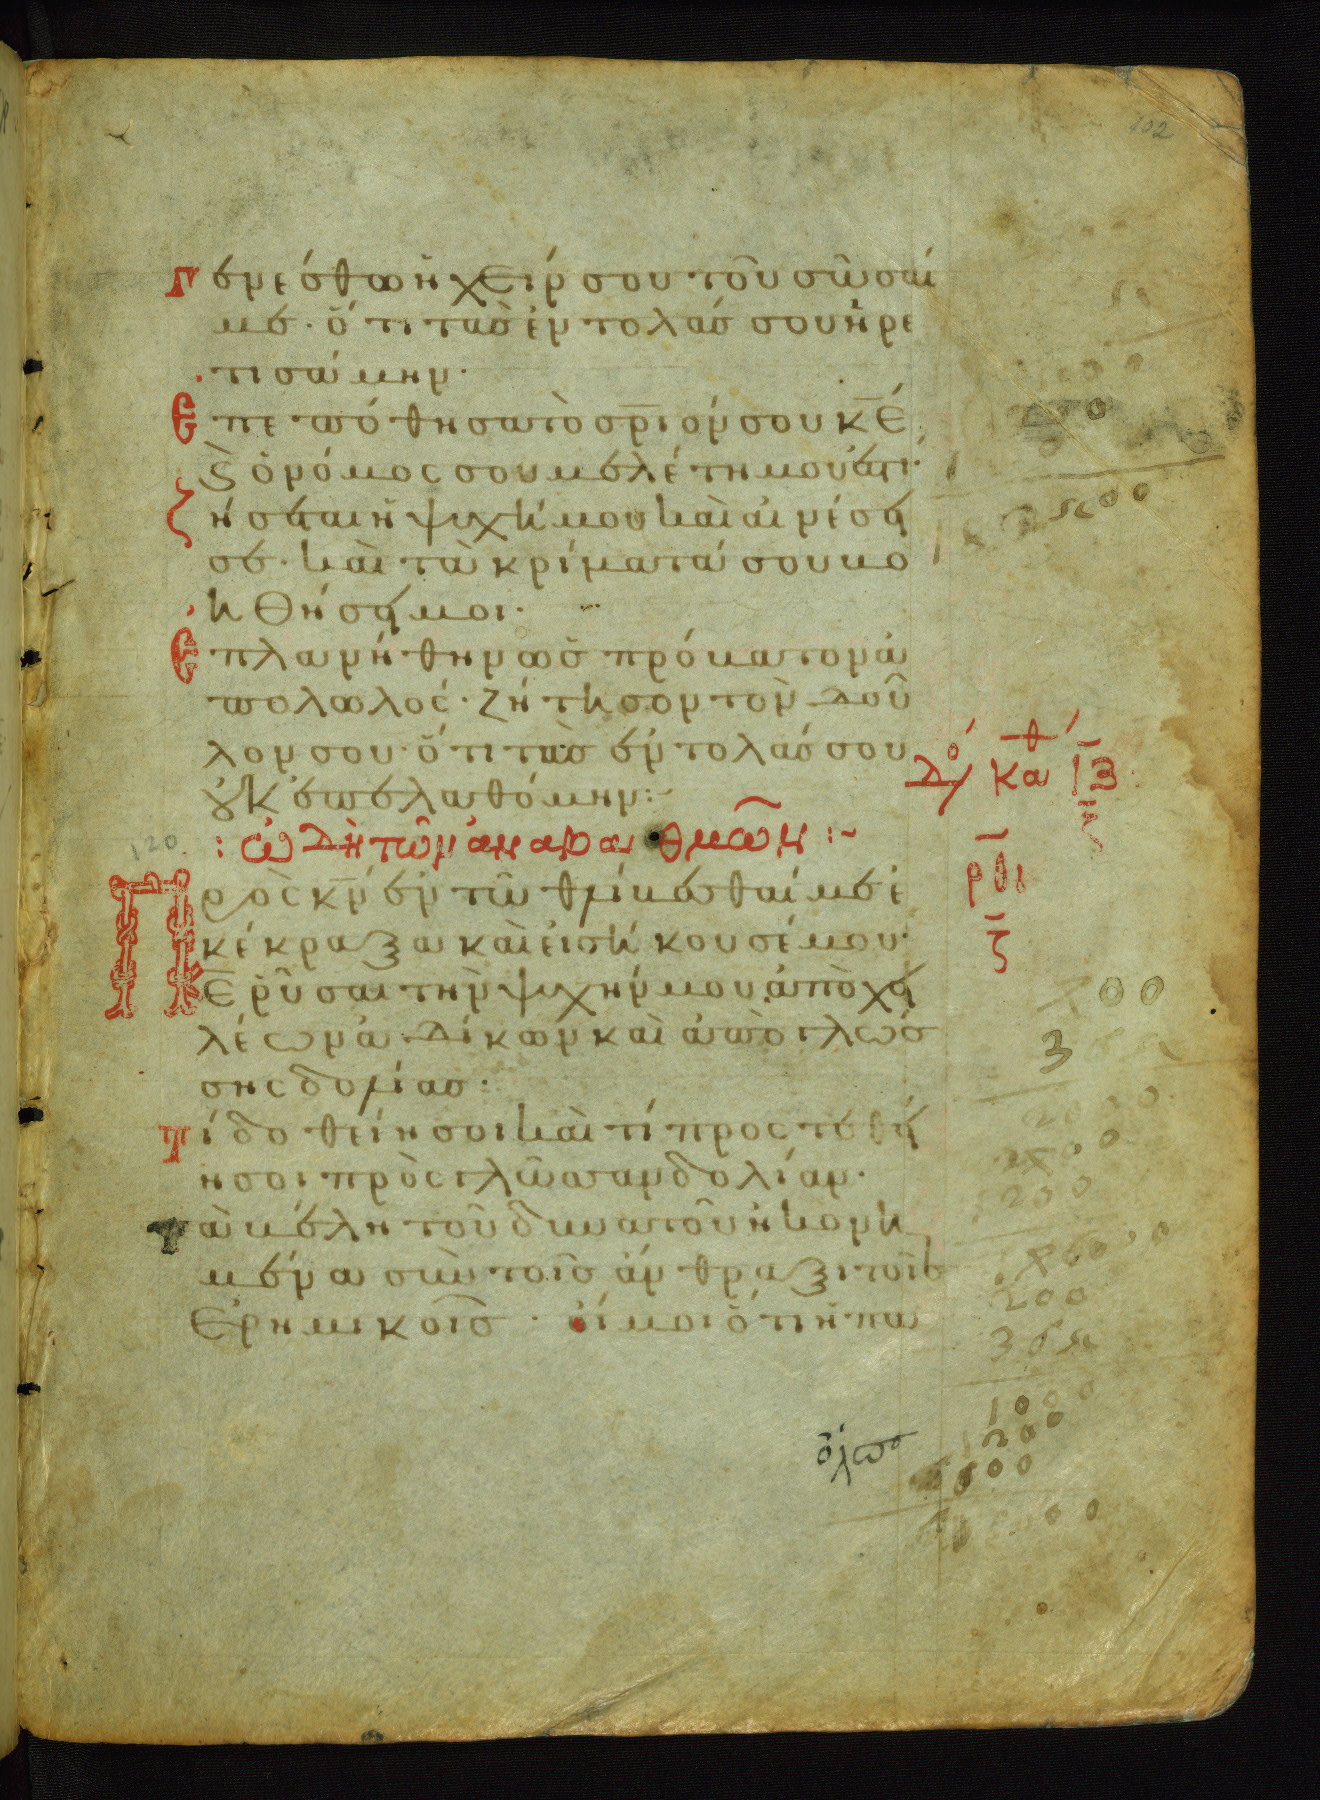 102
Γενέσθω ἡ χείρ σου τοῦ σῶσαί
με· ὅτι τὰς ἐντολάς σου ἡρε
τισάμην·
Ἐπεπόθησα τὸ σ̅ρ̅ιόν σου κ̅ε̅
ϗ ὁ νόμος σου μελέτη μου ἐστι·
ζήσεται ἡ ψυχή μου καὶ αἰνέσει
σε· καὶ τὰ κρίματά σου βο
ηθήσει μοι·
Ἐπλανήθην ὡς πρόβατον ἀ
πολωλός· ζήτησον τὸν δοῦ
λον σου· ὅτι τὰς ἐντολάς σου
οὐκ ἐπελαθόμην:~
: ὠδὴ τῶν ἀναβαθμῶν :~
120
Πρὸς κ̅ν̅ ἐν τῶ θλίβεσθαί με ἐ
κέκραξα καὶ εἰσήκουσέ μου·
Κ̅Ε̅ ῥῦσαι τὴν ψυχήν μου ἀπὸ χει
λέων ἀδίκων καὶ ἀπὸ γλώσ
σης δολίας·
Τί δοθείη σοι καὶ τί προστεθεί
η σοι πρὸς γλῶσσαν δολίαν·
Τὰ βέλη τοῦ δυνατοῦ ἠκονη
μένα σὺν τοῖς ἄνθραξι τοῖς
ἐρημικοῖς· οἴμοι ὅτι ἡ πα
κα
ρθι
ζ
00
3
200
200